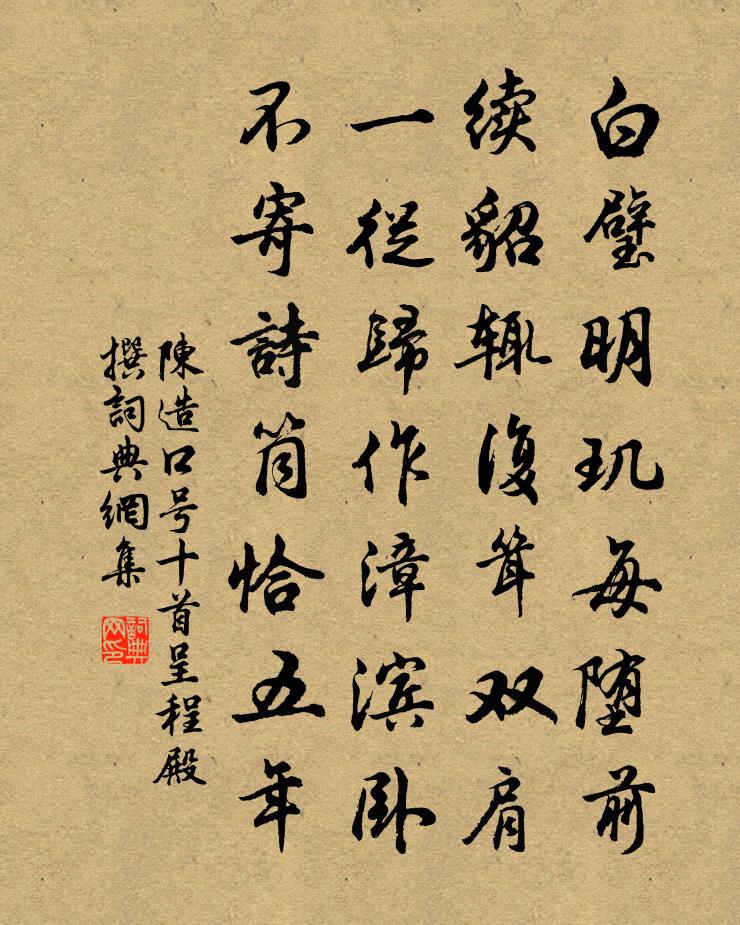 白璧明玑每堕前
续貂辄復耸双肩
一從歸作漳滨卧
不寄詩筒恰五年
陳造口号十首呈程殿
撰詞典網集
詞典
网印